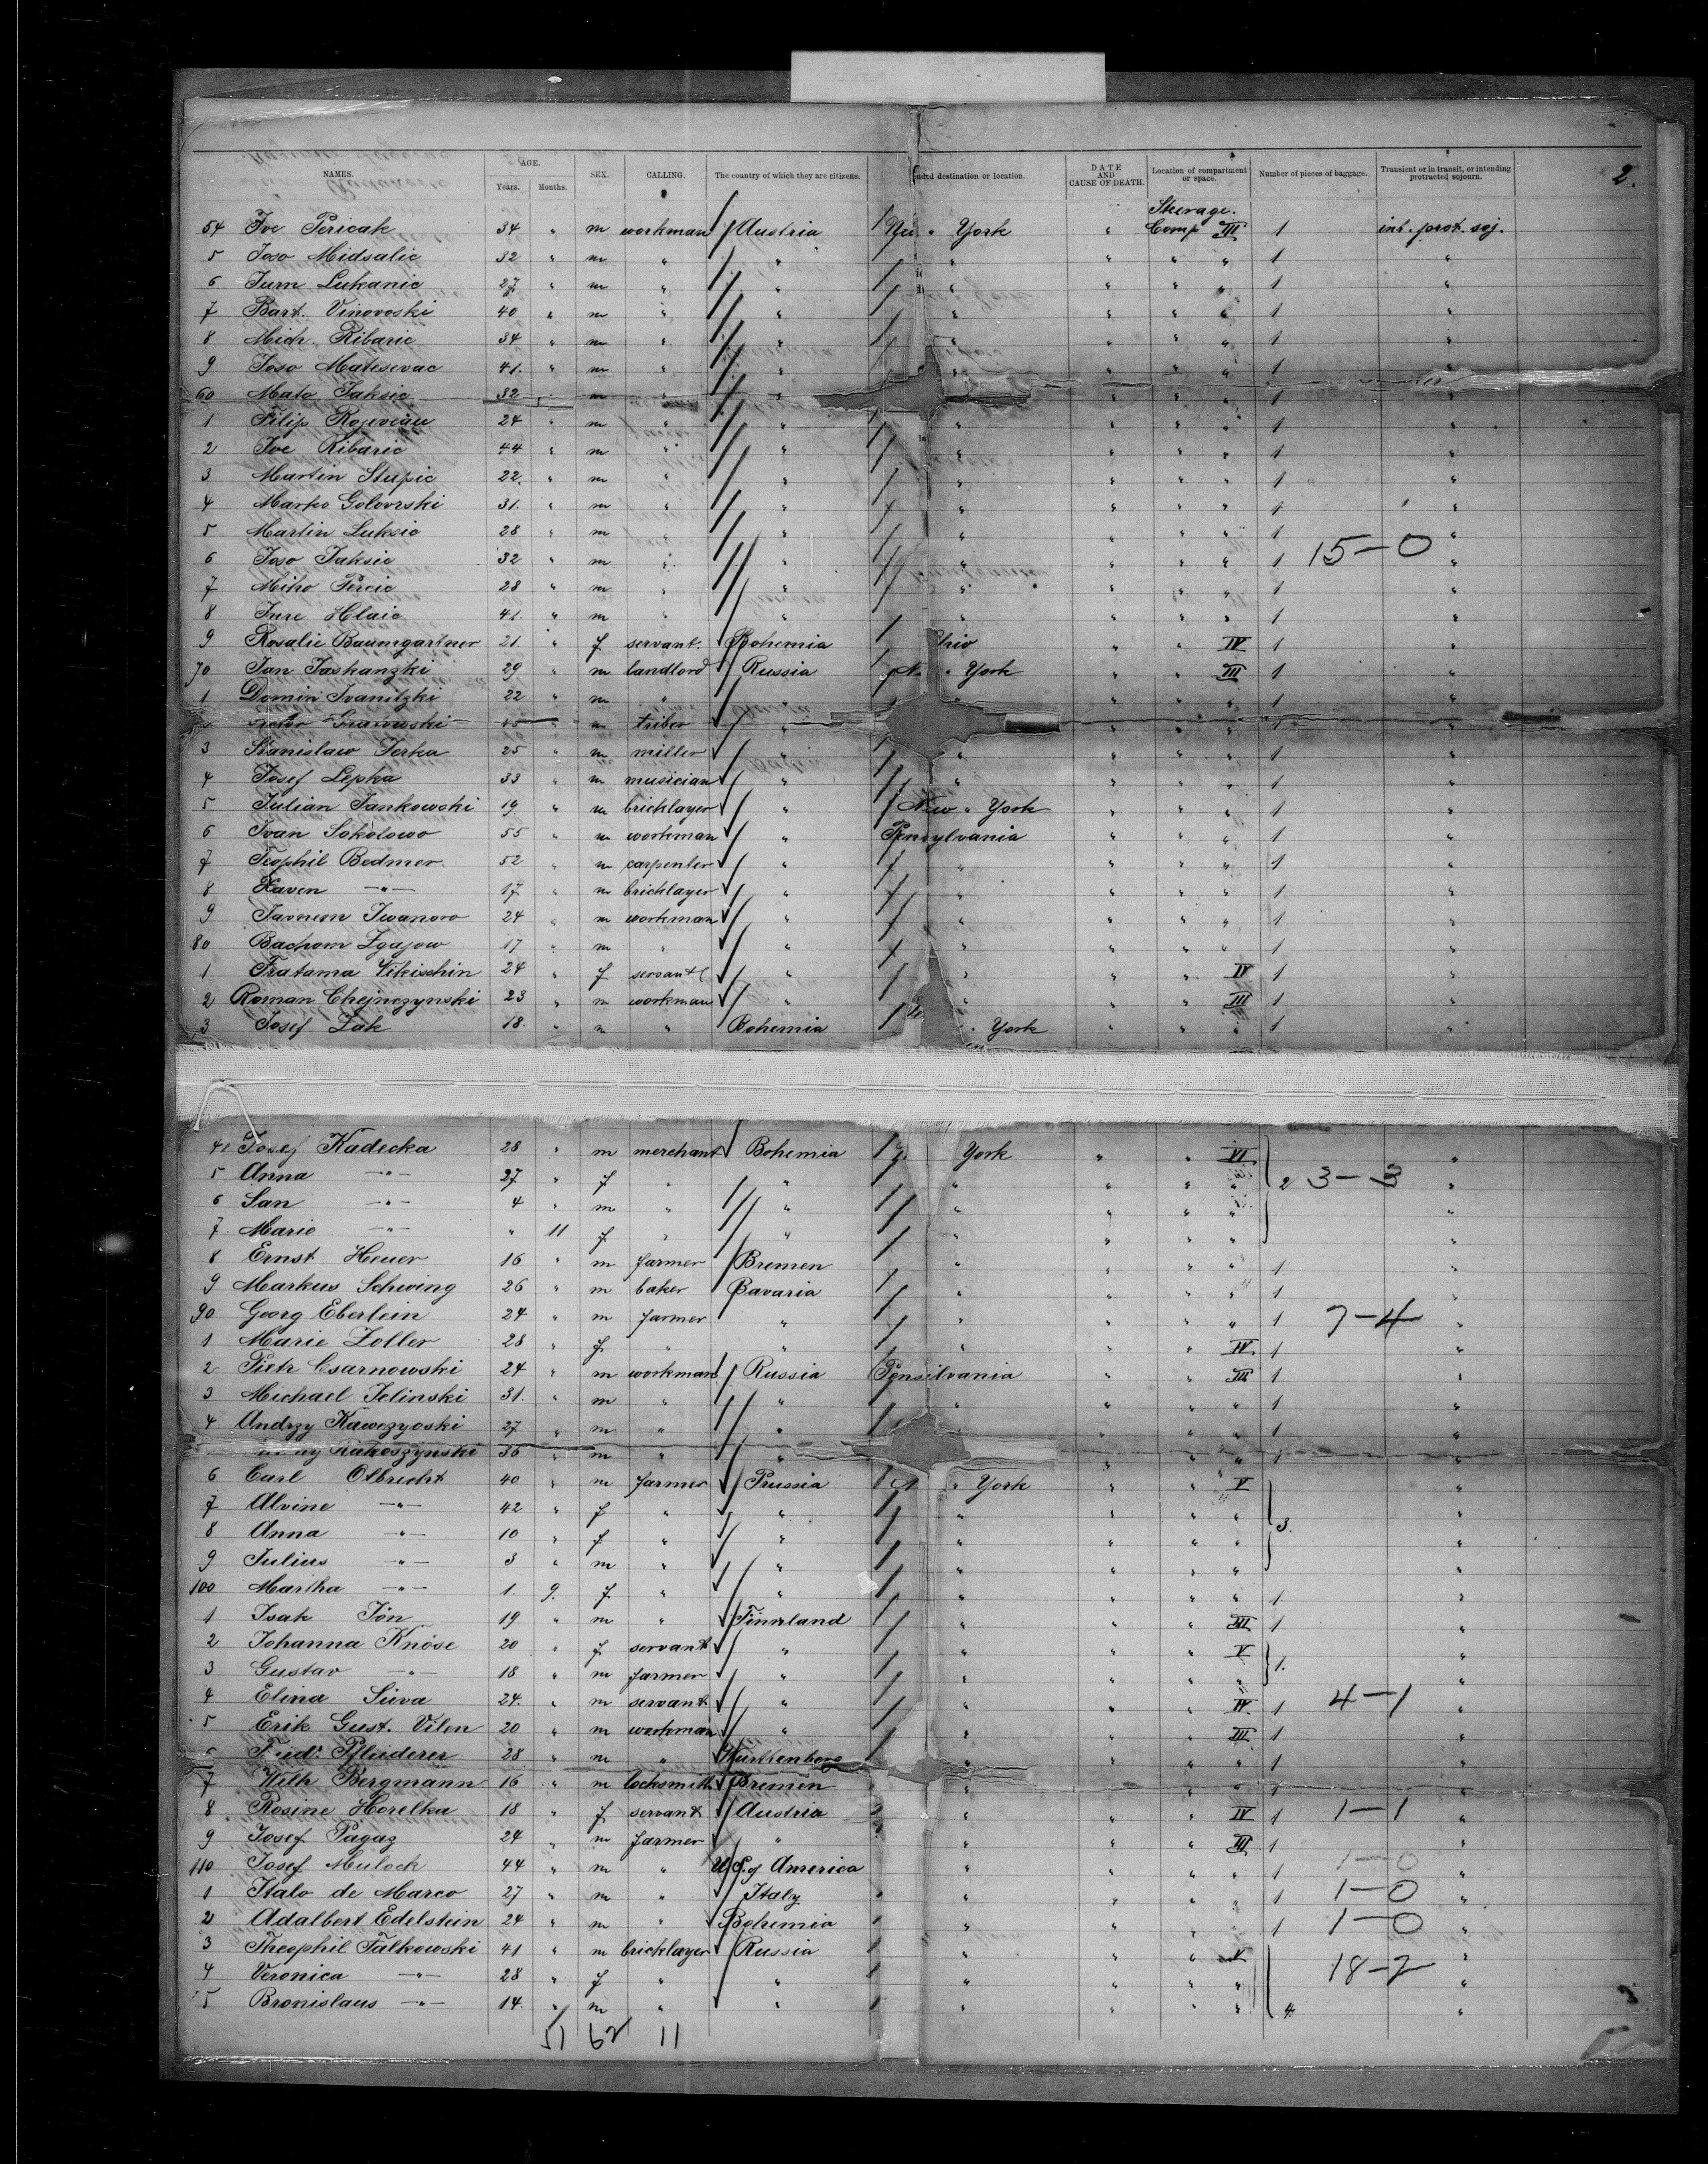 NAMES. AGE. Years. Months. SEX. CALLING. The country of which they are citizens. destination or location. DATE AND CAUSE OF DEATH. Location of compartment or space. Number of pieces of baggage. Transient or in transit, or intending protracted sojourn. 2.
Steerage.
54 Ive Pericak 34 " m workman Austria New " York " Comp III 1 int. prot. soj.
5 Joso Midsalic 32 " m " " " " " " 1 "
6 Jurn Lukanic 27 " m " " " " " " 1 "
7 Bart. Vinovoski 40 " m " " " " " " 1 "
8 Mich. Ribaric 34 " m " " " " " " 1 "
9 Joso Matesevac 41. " m " " " " " " 1 "
60 Mato Jaksic 32 " m " " " " " 1 "
1 Filip Rojeviau 24 " m " " " " " " 1 "
2 Ive Ribaric 44 " m " " " " " " 1 "
3 Martin Stupic 22. " m " " " " " " 1 "
4 Marko Golovrski 31. " m " " " " " " 1 "
5 Martin Luksic 28 " m " " " " " " 1 "
6 Joso Jaksic 32 " m " " " " " " 1 15-0 "
7 Miho Percic 28 " m " " " " " " 1 "
8 Jure Hlaic 41. " m " " " " " " 1 "
9 Rosalie Baumgartner 21. " f servant. Bohemia hio " " IV 1 "
70 Jan Jaskanzki 29 " m landlord Russia N. " York " " III 1 "
1 Domin Ivanitzki 22 " m " " " " " " 1 "
45 m triber " " " " " 1 "
3 Stanislaw Jerka 25 " m miller " " " " " 1 "
4 Josef Lepka 33 " m musician " " " " " 1 "
5 Julian Jankowski 19 " m bricklayer " New " York " " " 1 "
6 Ivan Sokolowo 55 " m workman " Pensylvania " " " 1 "
7 Teophil Bedmer 52 " m carpenter " " " " " 1 "
8 Xaven -"- 17 " m bricklayer " " " " " 1 "
9 Javnem Iwanoro 24 " m workman " " " " " 1 "
80 Bachom Zgajow 17 " m " " " " " " 1 "
1 Fratama Vikischin 24 " f servant " " " " IV 1 "
2 Roman Chejnczynski 23 " m workman " " " " III 1 "
3 Josef Zak 18. " m " Bohemia " York " " " 1 "
4 Josef Kadecka 28 " m merchant Bohemia York " " VI "
5 Anna -"- 27 " f " " " " " " 2 3-3 "
6 San -"- 4 " m " " " " " "
7 Marie -"- " 11 f " " " " " " "
8 Ernst Heuer 16 " m farmer Bremen " " " " 1 "
9 Markus Schwing 26 " m baker Bavaria " " " " 1 "
90 Georg Eberlein 24 " m farmer " " " " " 1 7-4 "
1 Marie Zoller 28 " f " " " " " IV. 1 "
2 Pietr Csarnowski 24 " m workman Russia Pensilvania " " III 1 "
3 Michael Jelinski 31. " m " " " " " " 1 "
4 Andrzy Kawczyoski 27 " m " " " " " 1 "
36 " m " " " " " 1 "
6 Carl Olbricht 40 " m farmer Prussia " York " " V "
7 Alvine -"- 42 " f " " " " " " "
8 Anna -"- 10 " f " " " " " " 3. "
9 Julius -"- 3 " m " " " " " " "
100 Martha -"- 1. 9. f " " " " " " 1 "
1 Isak Jön 19 " m " Finnland " " " III 1 "
2 Johanna Knöse 20 " f servant " " " " V "
3 Gustav -"- 18 " m farmer " " " " " 1. "
4 Elina Süva 24. " m servant " " " " IV. 1 4-1 "
5 Erik Gust. Vilen 20 " m workman " " " " III 1 "
Friedr. Pfliederer 28 " m " Wurttenberg " " " " 1 "
7 Wilh Bergmann 16 " m locksmith Bremen " " " 1 "
8 Rosine Horelka 18 " f servant Austria " " " IV 1 1-1 "
9 Josef Pagaz 24 " m farmer " " " " III 1 "
110 Josef Mulock 44 " m " U.S. of America " " " " 1 1-0 "
1 Italo de Marco 27 " m " Italy " " " " 1 1-0 "
2 Adalbert Edelstein 24 " m " Bohemia " " " " 1 1-0 "
3 Theophil Falkowski 41 " m bricklayer Russia " " " V "
4 Veronica -"- 28 " f " " " " " " 18-2 "
5 Bronislaus -"- 14. " m " " " " " " 4. "
51 62 11